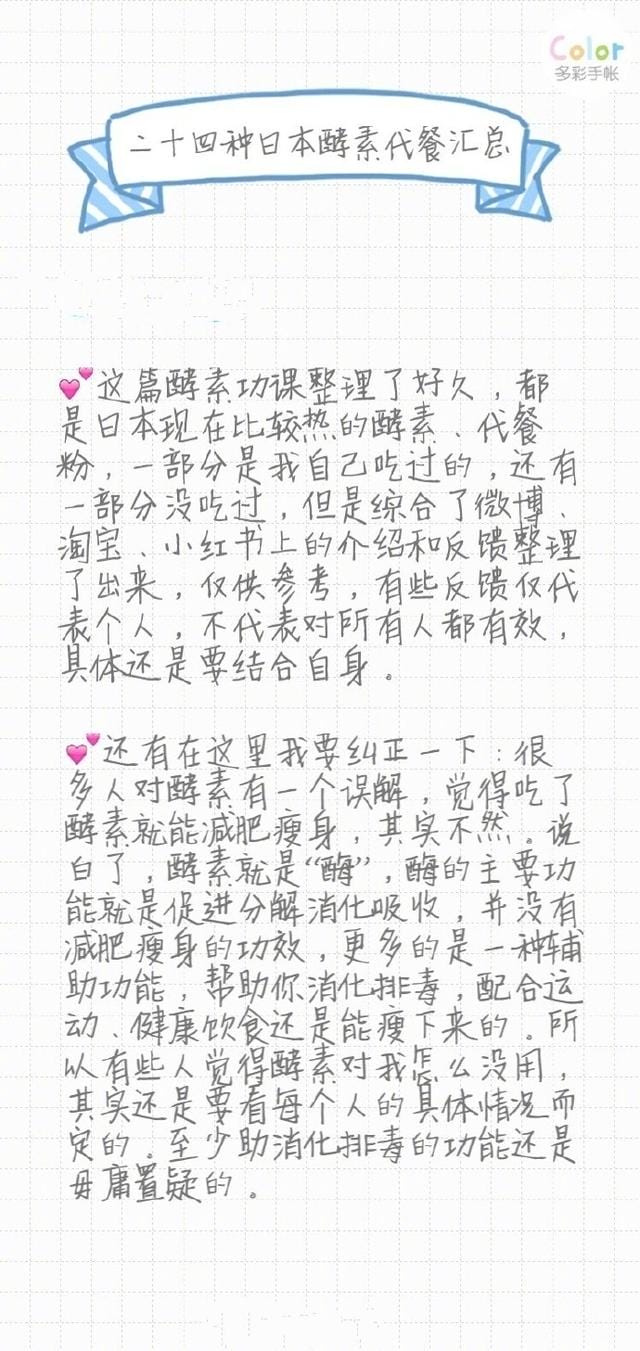 Color
多彩手帐
二十四种日本酵素代餐汇总
这篇酵素功课整理了好久，都
是日本现在比较热的酵素、代餐
粉，一部分是我自己吃过的，还有
一部分没吃过，但是综合了微博、
淘宝、小红书上的介绍和反馈整理
了出来，仅供参考，有些反馈仅代
表个人，不代表对所有人都有效，
具体还是要结合自身。
还有在这里我要纠正一下：很
多人对酵素有一个误解，觉得吃了
酵素就能减肥瘦身，其实不然。说
白了，酵素就是“酶”，酶的主要功
能就是促进分解消化吸收，并没有
减肥瘦身的功效，更多的是一种辅
助功能，帮助你消化排毒，配合运
动、健康饮食还是能瘦下来的。所
以有些人觉得酵素对我怎么没用，
其实还是要看每个人的具体情况而
定的。至少助消化排毒的功能还是
毋庸置疑的。